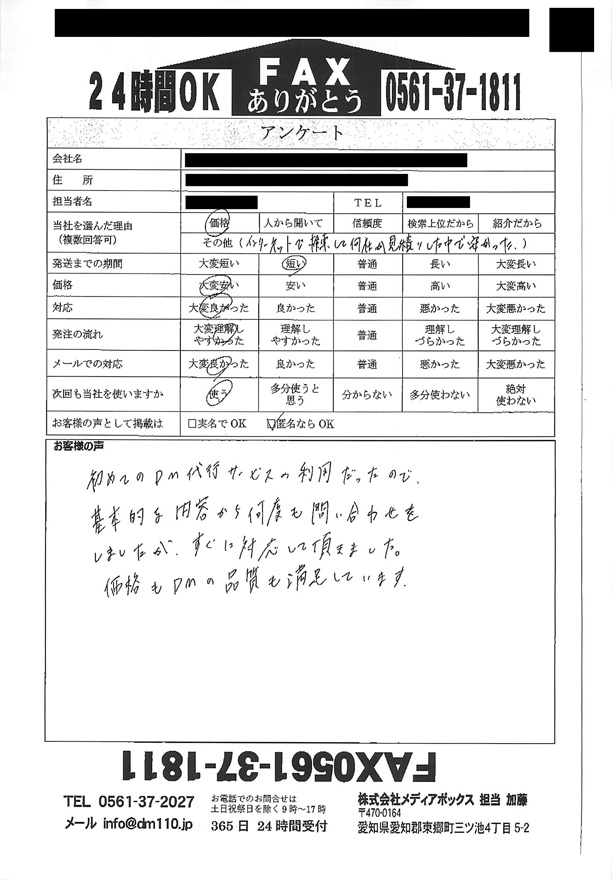 24時間OK
FAX
ありがとう
0561-37-1811
アンケート
会社名
住　所
担当者名　TEL
当社を選んだ理由（複数回答可）　価格　人から聞いて　信頼度　検索上位だから　紹介だから
その他（インターネットで検索して何社か見積りした中で安かった。）
発送までの期間　大変短い　短い　普通　長い　大変長い
価格　大変安い　安い　普通　高い　大変高い
対応　大変良かった　良かった　普通　悪かった　大変悪かった
発注の流れ　大変理解しやすかった　理解しやすかった　普通　理解しづらかった　大変理解しづらかった
メールでの対応　大変良かった　良かった　普通　悪かった　大変悪かった
次回も当社を使いますか　使う　多分使うと思う　分からない　多分使わない　絶対使わない
お客様の声として掲載は　□実名でOK　☑匿名ならOK
お客様の声
初めてのDM代行サービスの利用だったので、
基本的な内容から何度も問い合わせを
しましたが、すぐに対応して頂きました。
価格もDMの品質も満足しています。
FAX0561-37-1811
TEL 0561-37-2027
メール info@dm110.jp
お電話でのお問合せは
土日祝祭日を除く9時〜17時
365日 24時間受付
株式会社メディアボックス 担当 加藤
〒470-0164
愛知県愛知郡東郷町三ツ池4丁目5-2